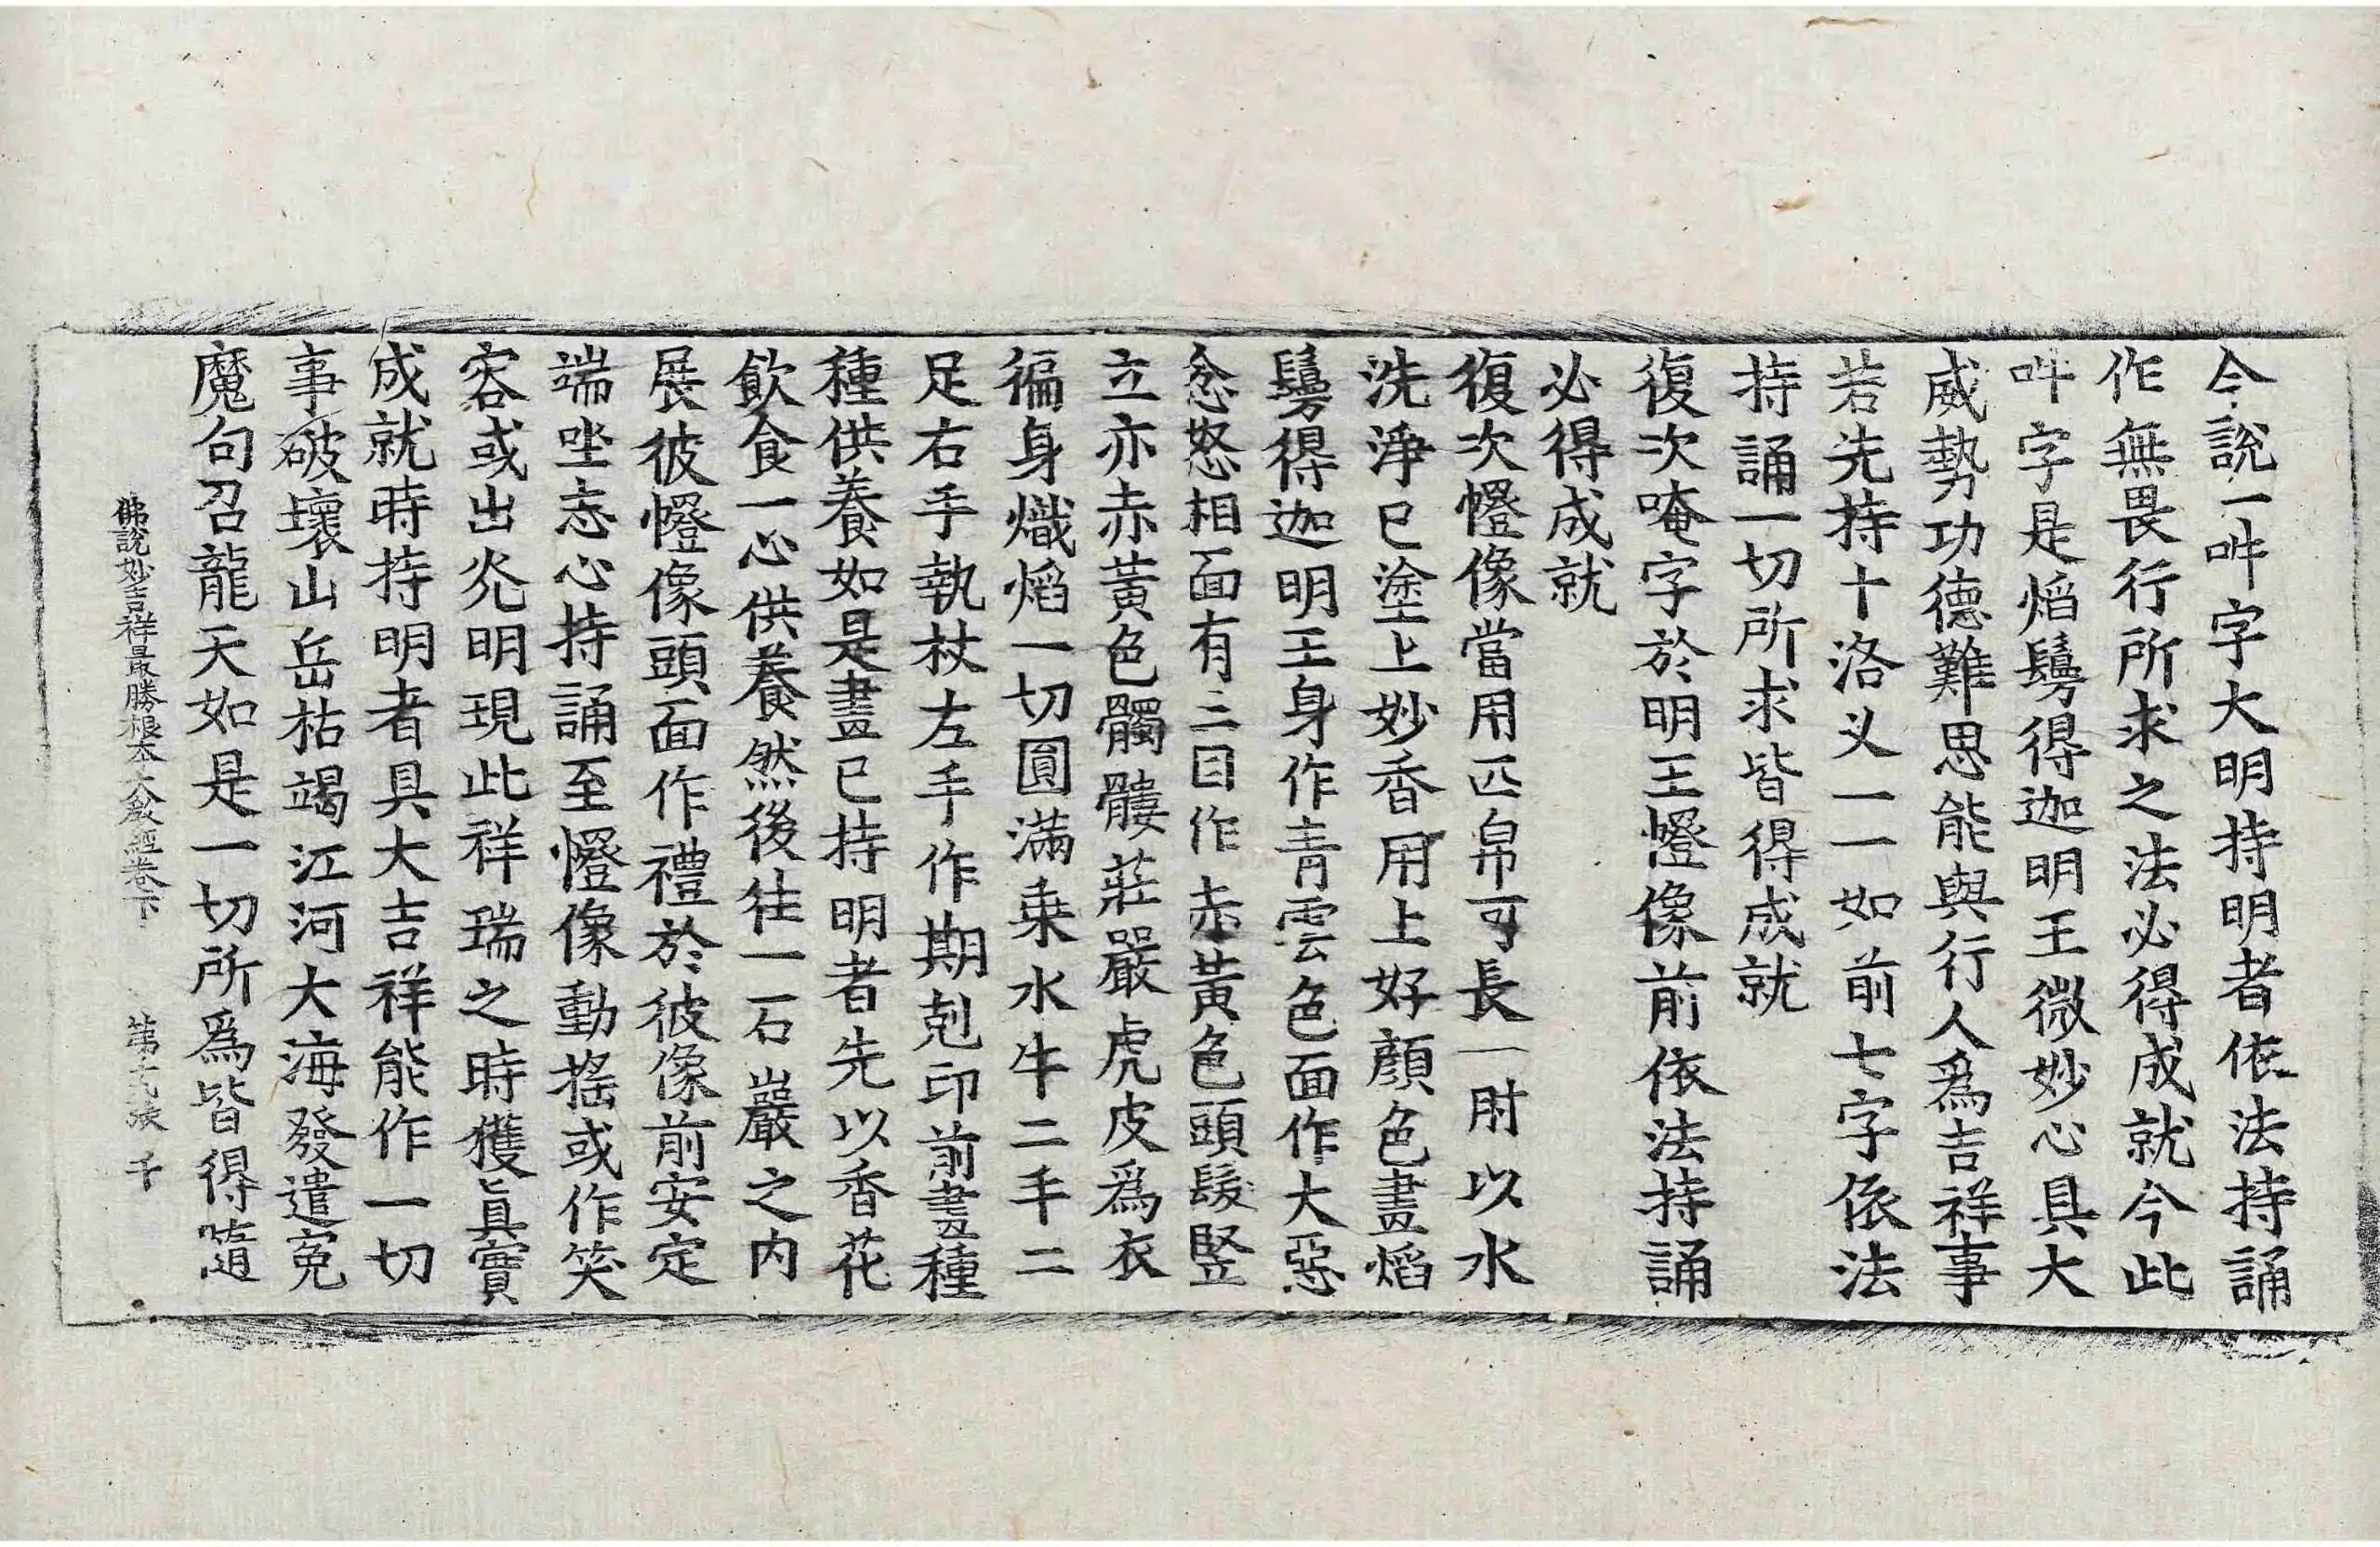 今說一吽字大明持明者依法持誦
作無畏行所求之法必得成就今此
吽字是焰鬘得迦明王微妙心具大
威勢功德難思能與行人爲吉祥事
若先持十洛叉一一如前七字依法
持誦一切所求皆得成就
復次唵字於明王㡧像前依法持誦
必得成就
復次㡧像當用匹帛可長一肘以水
洗淨已塗上妙香用上好顔色畫焰
鬘得迦明王身作青雲色面作大惡
忿怒相面有三目作赤黃色頭髮竪
立亦赤黃色髑髏莊嚴虎皮爲衣
徧身熾焰一切圓滿乗水牛二手二
足右手執杖左手作期剋印前畫種
種供養如是畫已持明者先以香花
飮食一心供養然後往一石巖之內
展彼㡧像頭面作禮於彼像前安定
端坐志心持誦至㡧像動搖或作笑
容或出光明現此祥瑞之時獲眞實
成就時持明者具大吉祥能作一切
事破壞山岳枯竭江河大海發遣寃
魔句召龍天如是一切所爲皆得隨
佛說妙吉祥最勝根本大教經卷下 第 張 千